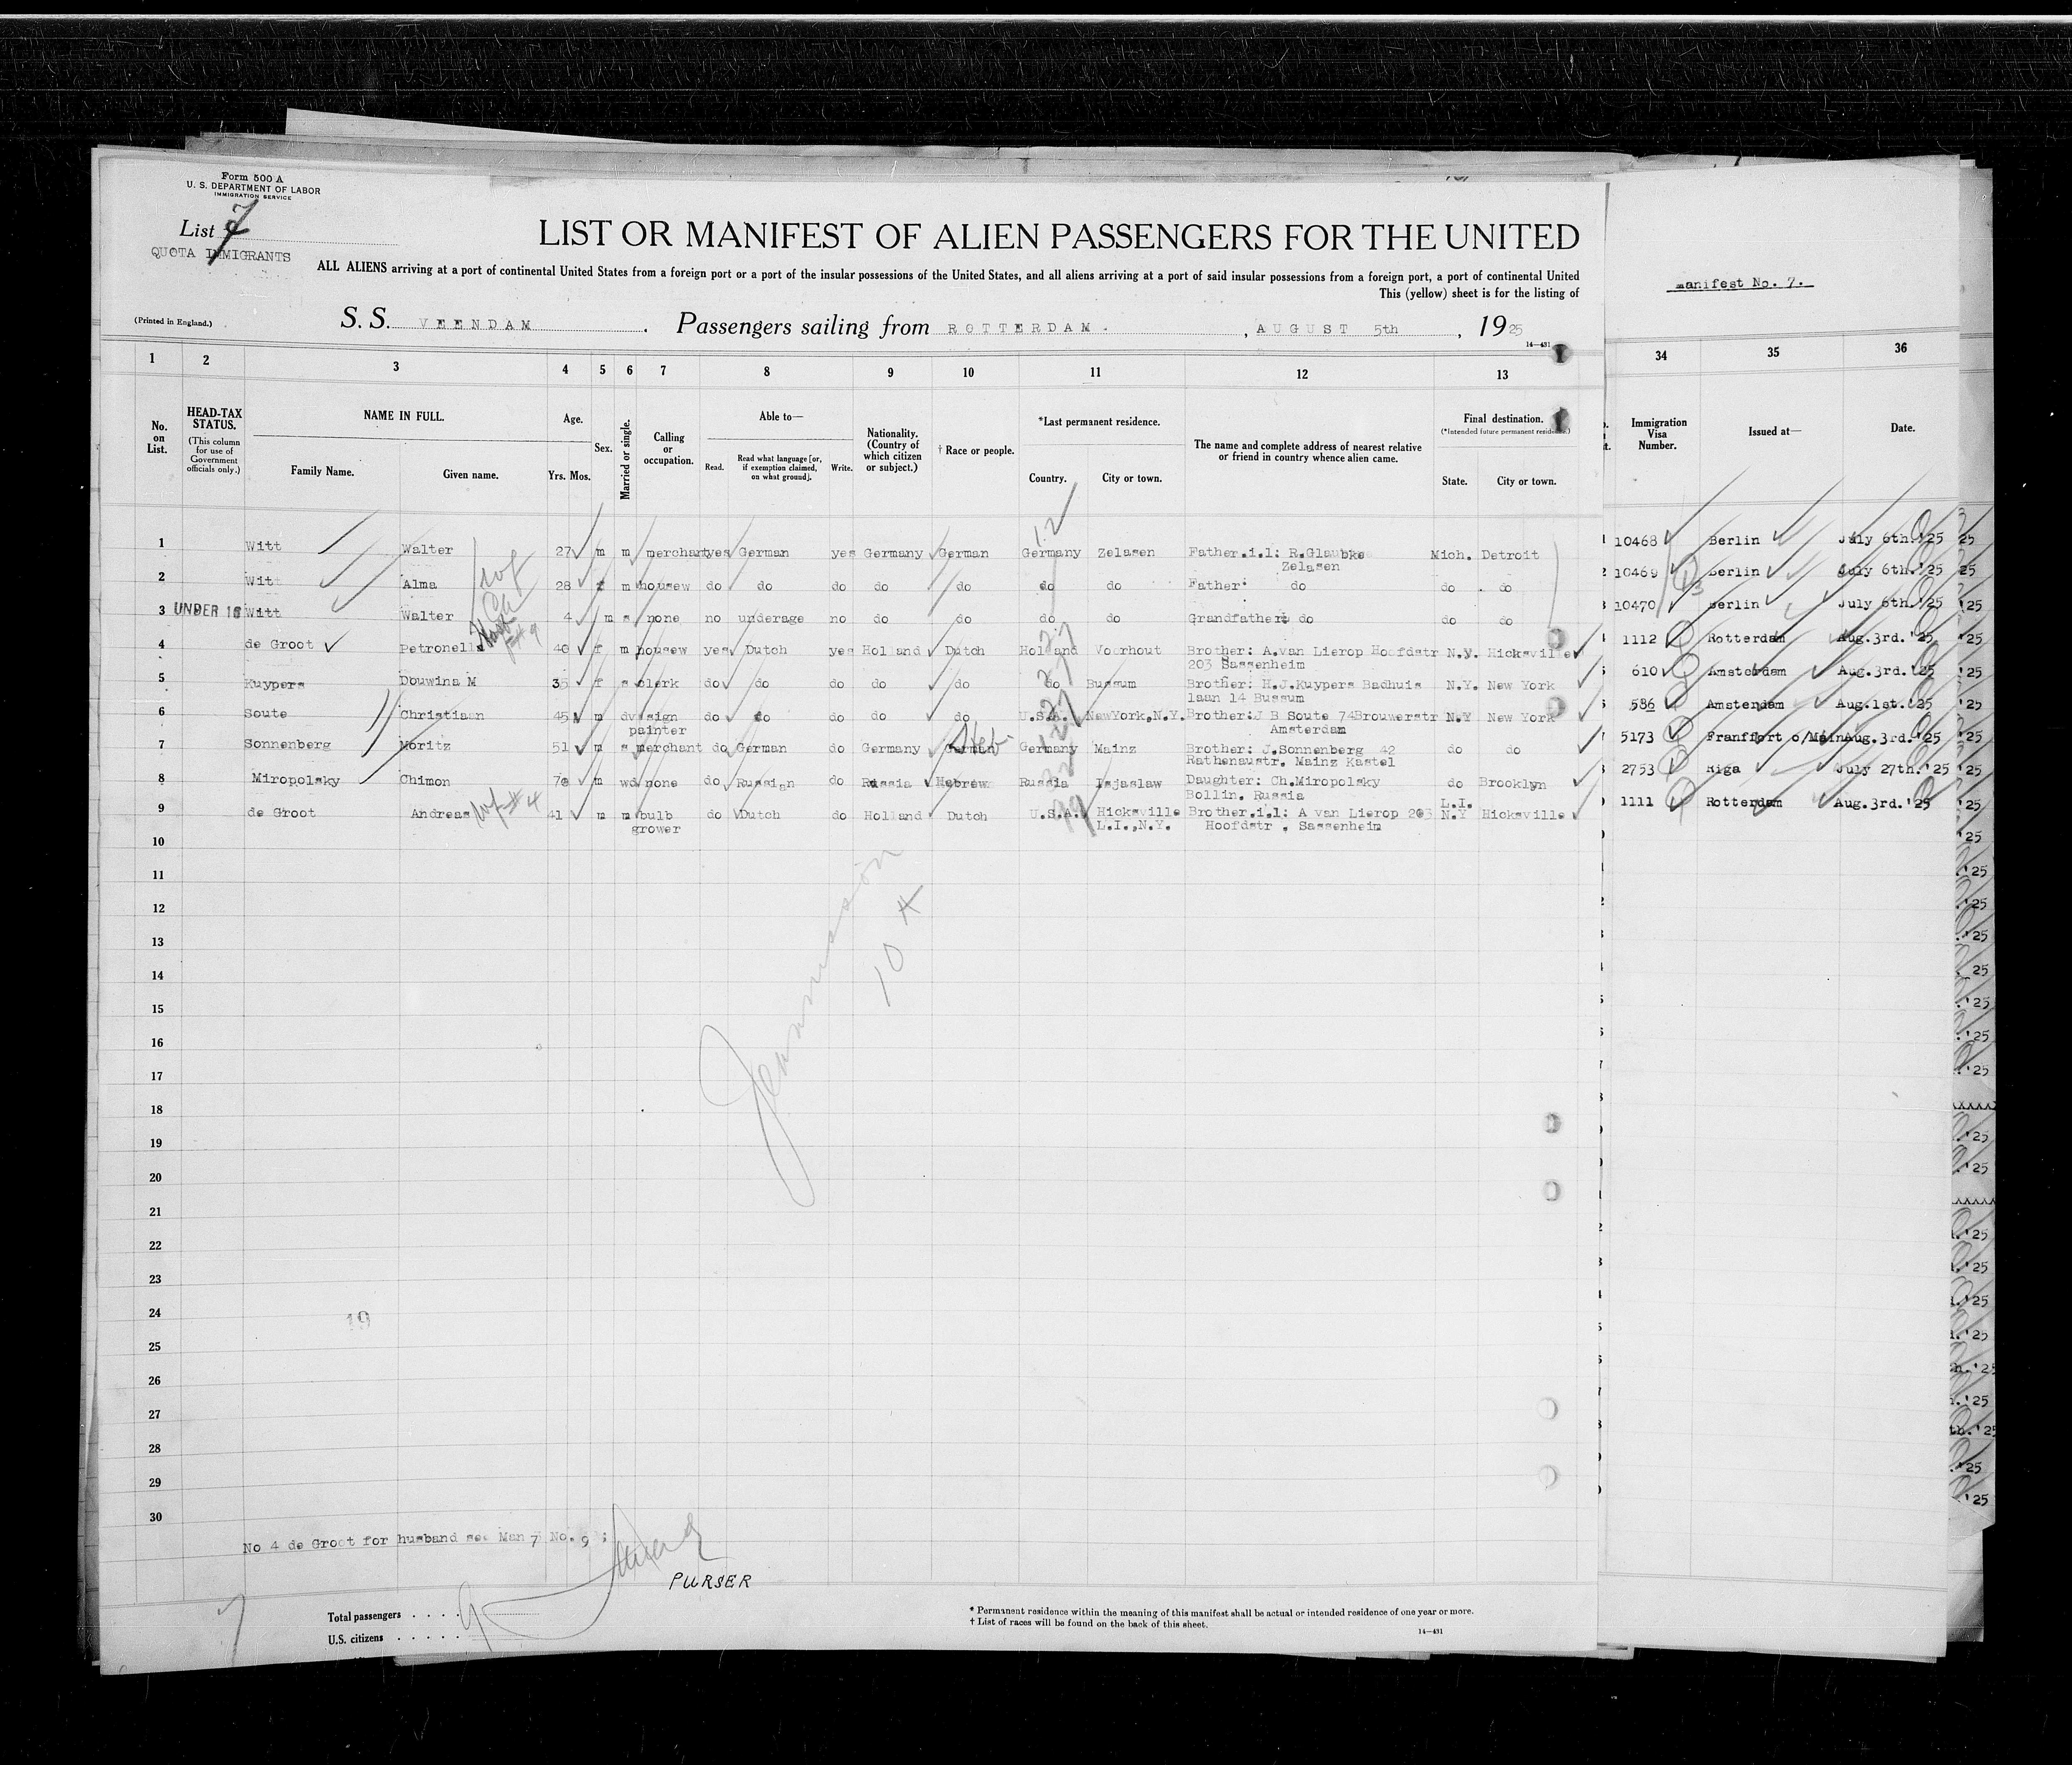 Form 500 A
U. S. DEPARTMENT OF LABOR
IMMIGRATION SERVICE
List 7
QUOTA IMMIGRANTS
LIST OR MANIFEST OF ALIEN PASSENGERS FOR THE UNITED
ALL ALIENS arriving at a port of continental United States from a foreign port or a port of the insular possessions of the United States, and all aliens arriving at a port of said insular possessions from a foreign port, a port of continental United
This (yellow) sheet is for the listing of
manifest No. 7.
(Printed in England.)
S. S. VEENDAM . Passengers sailing from ROTTERDAM. , AUGUST 5th , 1925
14—431
1 2 3 4 5 6 7 8 9 10 11 12 13 34 35 36
No. on List.
HEAD-TAX STATUS.
(This column for use of Government officials only.)
NAME IN FULL.
Family Name. Given name.
Age.
Yrs. Mos.
Sex.
Married or single.
Calling or occupation.
Able to—
Read. Read what language [or, if exemption claimed, on what ground]. Write.
Nationality. (Country of which citizen or subject.)
† Race or people.
*Last permanent residence.
Country. City or town.
The name and complete address of nearest relative or friend in country whence alien came.
Final destination.
(*Intended future permanent residence.)
State. City or town.
Immigration Visa Number.
Issued at—
Date.
1 Witt Walter 27 m m merchant yes German yes Germany German Germany Zelasen Father.i.l: R.Glaubke Mich. Detroit 10468 Berlin July 6th.'25
Zelasen
2 Witt Alma 28 f m housew do do do do do do do Father: do do do 10469 Berlin July 6th.'25
3 UNDER 16 Witt Walter 4 m s none no underage no do do do do Grandfather: do do do 10470 Berlin July 6th.'25
4 de Groot Petronella 40 f m housew yes Dutch yes Holland Dutch Holland Voorhout Brother: A.van Lierop Hoofdstr N.Y. Hicksville 1112 Rotterdam Aug.3rd.'25
203 Sassenheim
5 Kuypers Douwina M 35 f s clerk do do do do do do Bussum Brother: H.J.Kuypers Badhuis N.Y. New York 610 Amsterdam Aug.3rd.'25
laan 14 Bussum
6 Soute Christiaan 45 m dv sign do do do do do U.S.A. NewYork,N.Y. Brother:J B Soute 74Brouwerstr N.Y New York 586 Amsterdam Aug.1st.'25
painter Amsterdam
7 Sonnenberg Moritz 51 m s merchant do German do Germany German Heb. Germany Mainz Brother: J.Sonnenberg 42 do do 5173 Franffort o/Main Aug.3rd.'25
Rathenaustr. Mainz Kastel
8 Miropolsky Chimon 70 m wd none do Russian do Russia Hebrew Russia Isjaslaw Daughter: Ch.Miropolsky do Brooklyn 2753 Riga July 27th.'25
Bollin. Russia
9 de Groot Andreas wf #4 41 m m bulb do Dutch do Holland Dutch U.S.A. Hicksville Brother.i.l: A van Lierop 203 L.I. N.Y Hicksville 1111 Rotterdam Aug.3rd.'25
grower L.I.,N.Y. Hoofdstr . Sassenheim
10
11
12
13
14
15
16
17
18
19
20
21
22
23
24
25
26
27
28
29
30
19
No 4 de Groot for husband see Man 7 No. 9 ;
PURSER
7
Total passengers . . . . 9
U.S. citizens . . . . .
* Permanent residence within the meaning of this manifest shall be actual or intended residence of one year or more.
† List of races will be found on the back of this sheet.
14—431